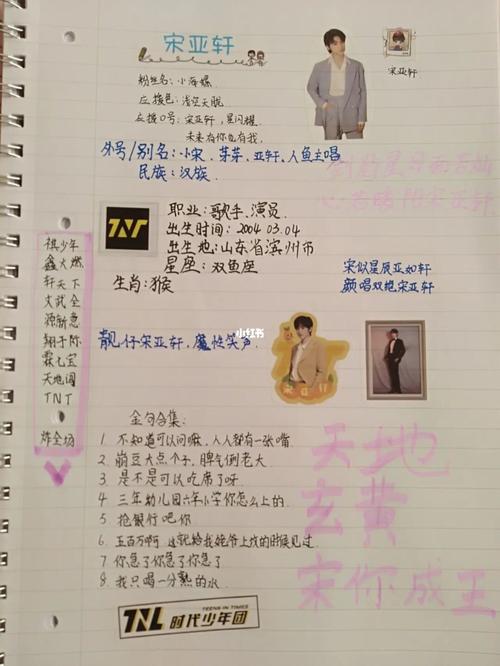 宋亚轩
宋亚轩
粉丝名：小海螺
应援色：浅空天靛
应援口号：宋亚轩，星闪耀
未来有你也有我.
外号/别名：小宋、芽芽、亚轩、人鱼主唱
民族：汉族
职业：歌手、演员
出生时间：2004 03.04
出生地：山东省滨州市
星座：双鱼座
生肖：猴
宋似星辰亚如轩
颜唱双绝宋亚轩
TNT
祺少年
鑫火燃
轩天下
文武全
源新意
翔于际
霖七宝
天地阔
TNT
炸全场
靓仔宋亚轩，魔性笑声
小红书
宋亚轩
金句合集：
1 不知道可以问嘛，人人都有一张嘴
2 崩豆大点个子，脾气倒老大
3 是不是可以吃席了呀
4 三年幼儿园六年小学你怎么上的
5 抢银行吧你
6 五百万啊 这就给我姥爷上坟的时候见过
7 你急了你急了你急了
8 我只喝一分熟的水
天地
玄黄
宋你成王
TEENS IN TIMES
TNL 时代少年团